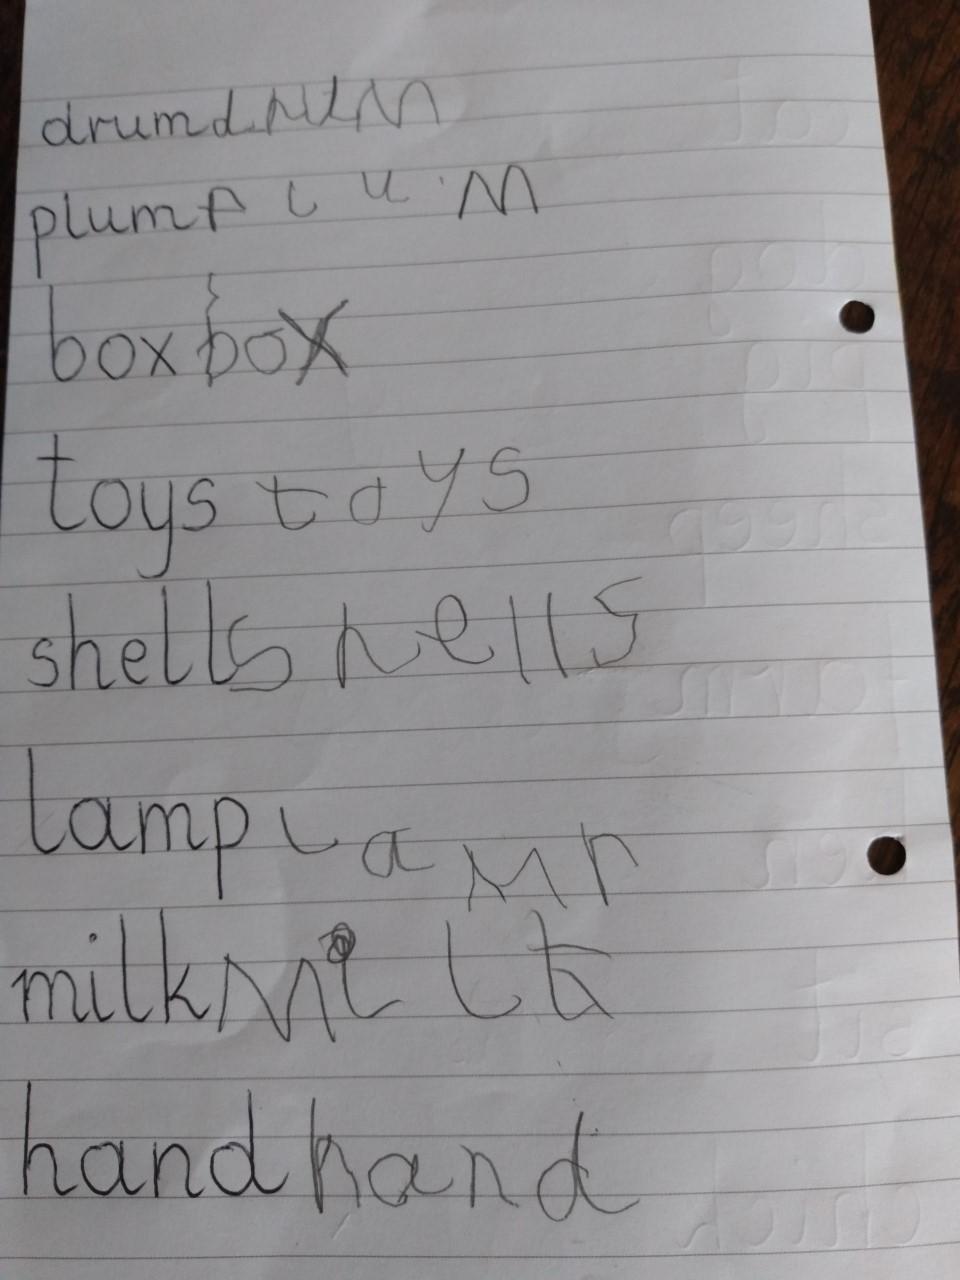 drum drum
plum plum
box box
toys toys
shells shells
lamp lamp
milk milk
hand hand